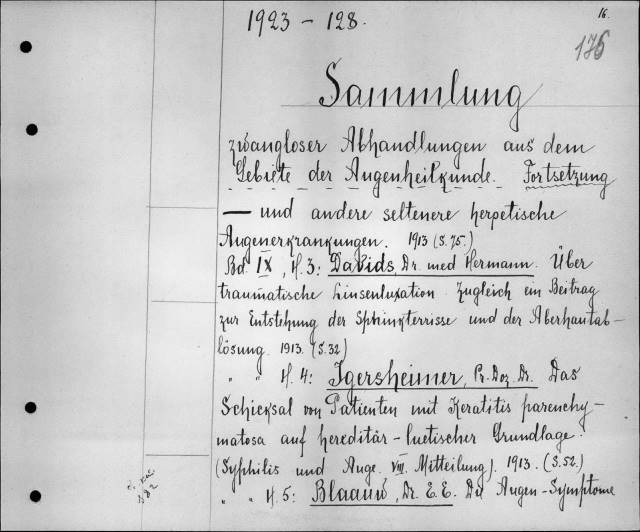 16.
1923 - 128.
176
Sammlung
zwangloser Abhandlungen aus dem
Gebiete der Augenheilkunde. Fortsetzung
— und andere seltenere herpetische
Augenerkrankungen. 1913 (S. 75.)
Bd. IX, H. 3: Davids, Dr. med Hermann. Über
traumatische Linsenluxation. Zugleich ein Beitrag
zur Entstehung der Sphinkterrisse und der Aderhautab-
lösung. 1913. (S. 32)
" " H. 4: Igersheimer, Pr. Doz. Dr. Das
Schicksal von Patienten mit Keratitis parenchy-
matosa auf hereditär-luetischer Grundlage.
(Syphilis und Auge. VIII. Mitteilung). 1913. (S. 52.)
" " H. 5: Blaauw, Dr. E. E. Die Augen-Symptome